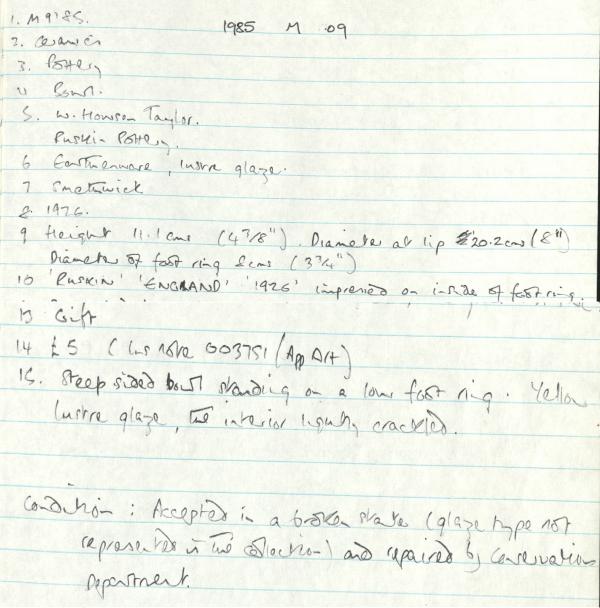 1. M9'85.
1985 M 09
2. Ceramics
3. Pottery
4 Bowl.
5. W. Howson Taylor.
Ruskin Pottery.
6 Earthenware, lustre glaze.
7 Smethwick
8. 1926.
9 Height 11.1 cms (4 3/8"). Diameter at lip 20.2cms (8")
Diameter of foot ring 8cms (3 3/4")
10 'RUSKIN' 'ENGLAND' '1926' impressed on inside of foot ring.
13 Gift
14 £5 (Ins note 003751 (App Art)
15. Steep sided bowl standing on a low foot ring. Yellow
lustre glaze, the interior lightly crackled.
Condition : Accepted in a broken state (glaze type not
represented in the collection) and repaired by Conservation
Department.